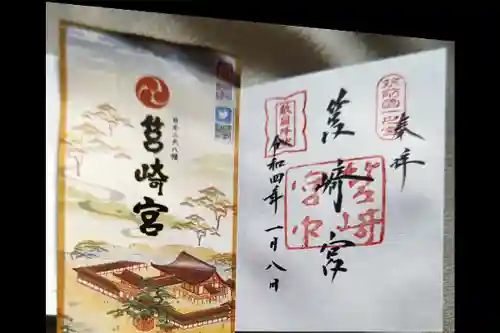 日本三大八幡
筥崎宮
奉拝
筑前國一之宮
筥崎宮
敵国降伏
筥崎宮印
令和四年一月八日